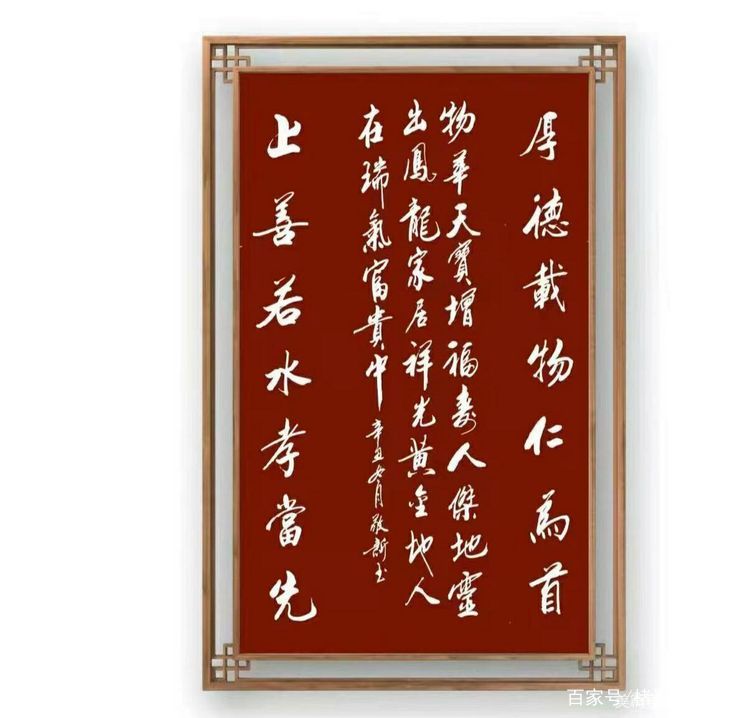 厚德載物仁為首
物華天寶增福壽人傑地靈
出鳳龍家居祥光黄金地人
在瑞氣富貴中
辛丑月敬新书
上善若水孝當先
百家号/